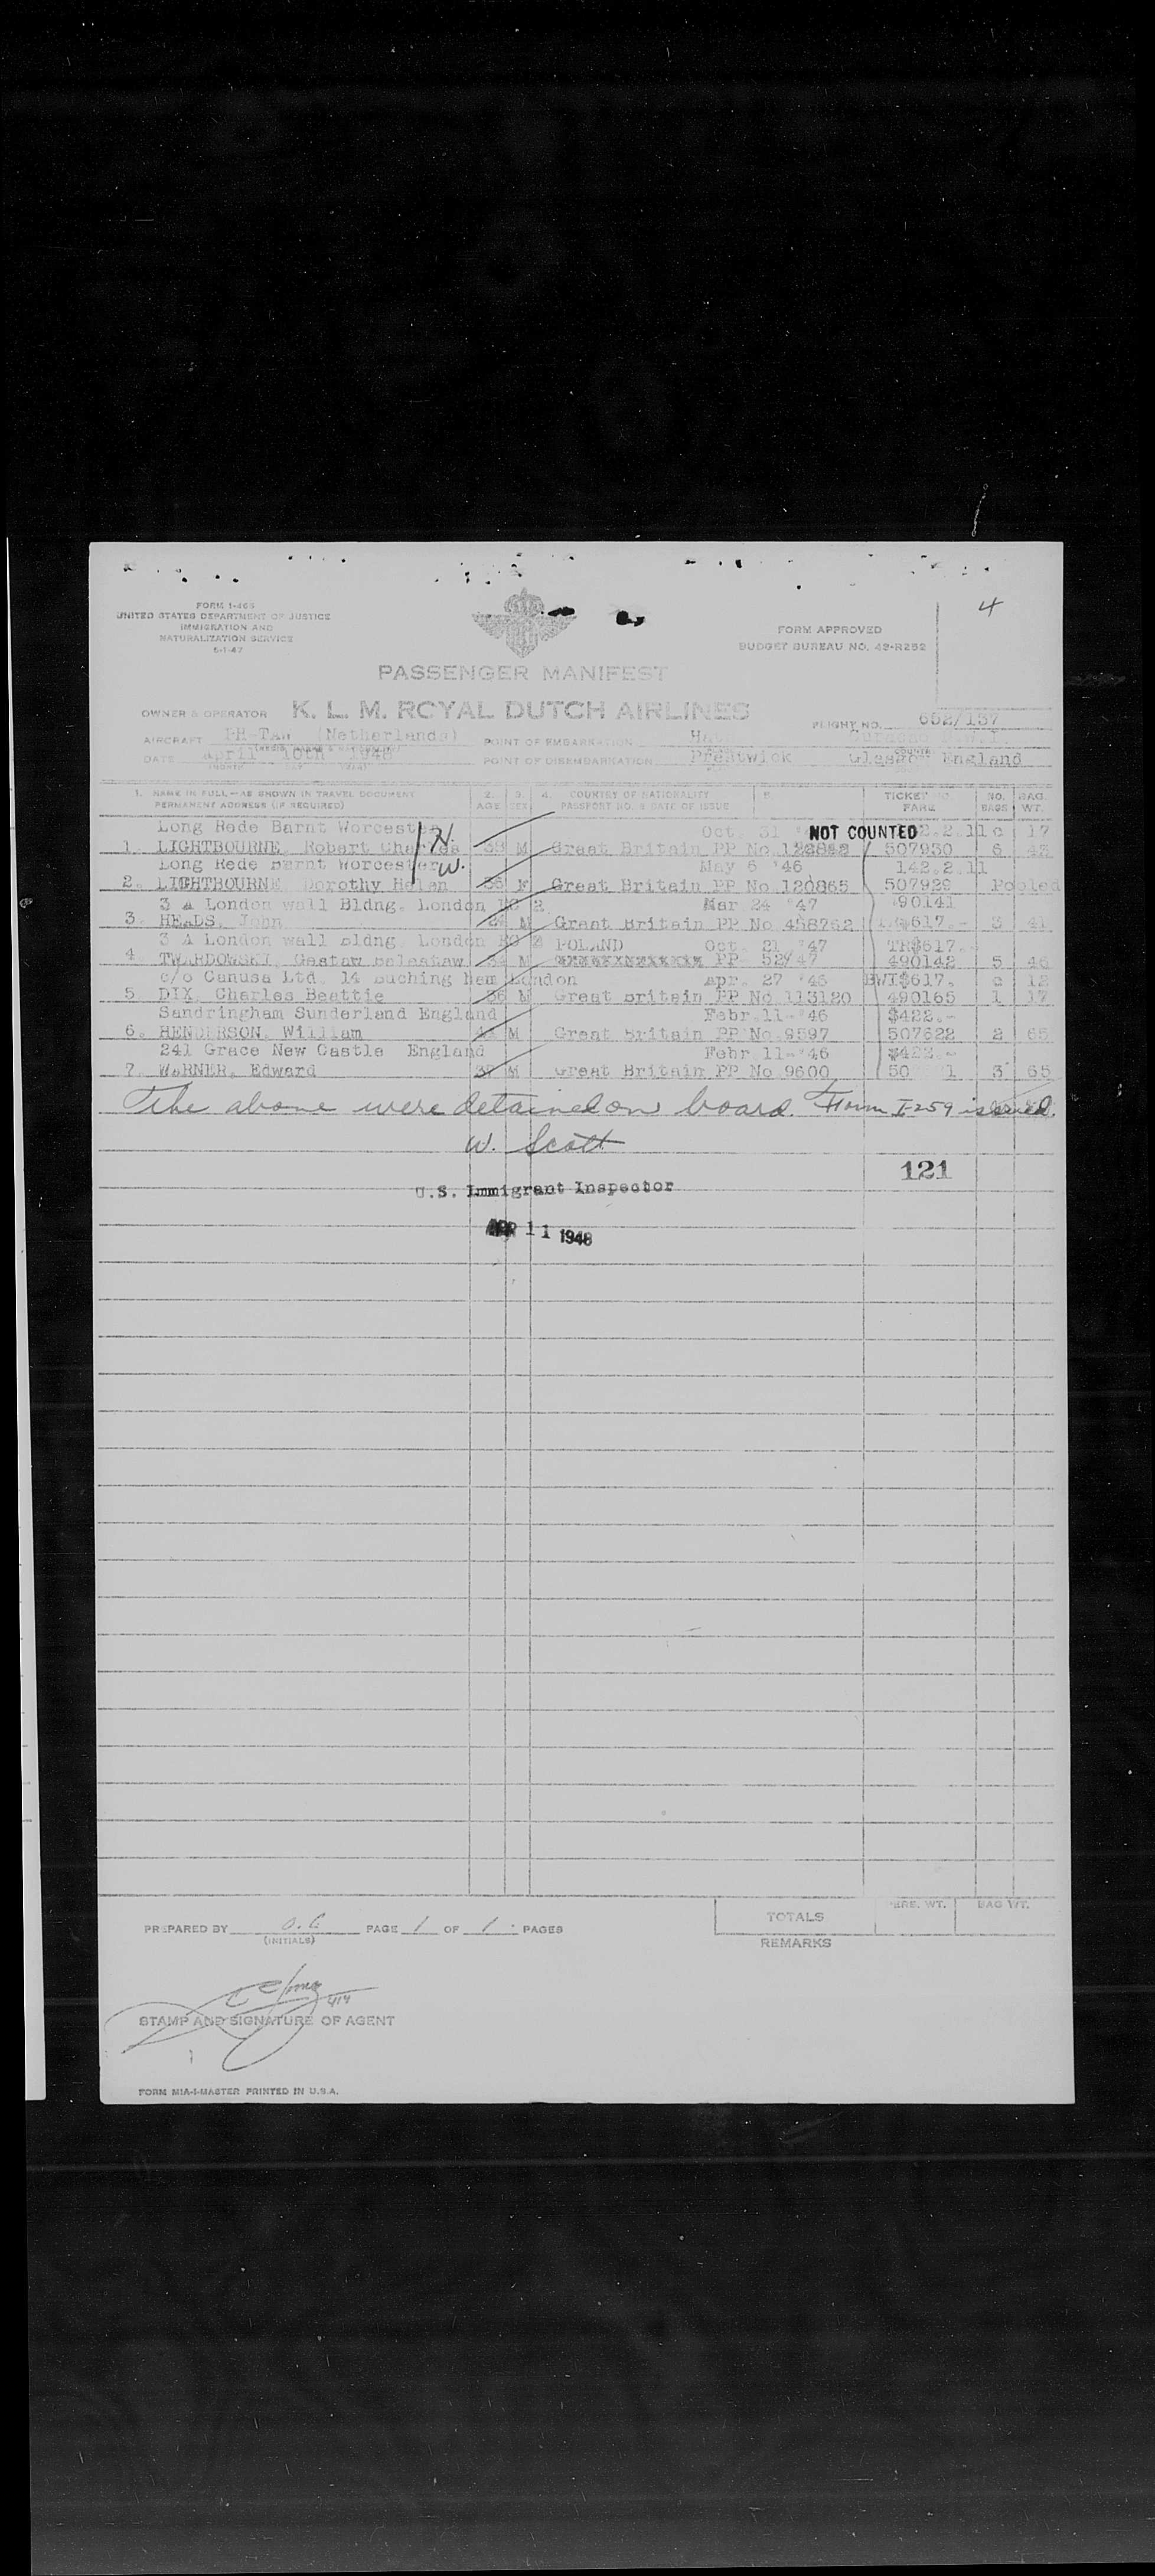 4
FORM I-466
UNITED STATES DEPARTMENT OF JUSTICE
IMMIGRATION AND
NATURALIZATION SERVICE
5-1-47
FORM APPROVED
BUDGET BUREAU NO. 43-R252
PASSENGER MANIFEST
OWNER & OPERATOR K. L. M. ROYAL DUTCH AIRLINES
FLIGHT NO. 652/137
AIRCRAFT PH-Taw (Netherlands) POINT OF EMBARKATION
DATE april 10th 1948 POINT OF DISEMBARKATION Prestwick Glasgow England
1. NAME IN FULL—AS SHOWN IN TRAVEL DOCUMENT 2. 3. 4. COUNTRY OF NATIONALITY 5. TICKET NO. NO. BAG.
PERMANENT ADDRESS (IF REQUIRED) AGE SEX PASSPORT NO. & DATE OF ISSUE FARE BAGS WT.
Long Rede Barnt Worcester H. Oct. 31 NOT COUNTED 2.2.11 c 17
1. LIGHTBOURNE, Robert Charles M Great Britain PP No 507930 6
Long Rede Barnt Worcester W. May 6 '46 142.2.11
2. LIGHTBOURNE Dorothy Helen F Great Britain PP No 120865 507929 Pooled
3 A London wall Bldng. London EC 2 Mar 24 '47 490141
3. HEADS, John M Great Britain PP No 458762 617.- 3 41
3 A London wall bldng. London EC 2 POLAND Oct. 21 '47 TR$617.-
4 TWARDOWSKI, M PP 52/47 490142 5 46
c/o Canusa Ltd. 14 London Apr. 27 '46 BWI$617. c 12
5 DIX, Charles Beattie 36 M Great britain PP No 113120 490165 1 17
Sandringham Sunderland England Febr.11-'46 $422.-
6. HENDERSON, William M Great Britain PP No 9597 507622 2 65
241 Grace New Castle England Febr 11-'46 $422.-
7. WARNER, Edward M Great Britain PP No 9600 3 65
The above were detained on board. Form I-259 issued.
W. Scott
121
U.S. Immigrant Inspector
APR 11 1948
TOTALS PERS. WT. BAG WT.
PREPARED BY PAGE 1 OF 1 PAGES
(INITIALS)
REMARKS
STAMP AND SIGNATURE OF AGENT
FORM MIA-I-MASTER PRINTED IN U.S.A.